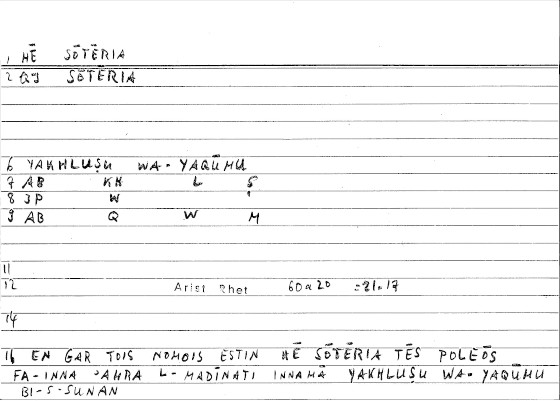 1 HĒ SŌTĒRIA
2 SŌTĒRIA
6 YAKHLUṢU WA-YAQŪMU
7 AB KH L Ṣ
8 3P W
9 AB Q W M
11
12 Arist Rhet 60a20 =21.17
14
16 EN GAR TOIS NOMOIS ESTIN HĒ SŌTĒRIA TĒS POLEŌS
FA-INNA L-MADĪNATI INNAMĀ YAKHLUṢU WA-YAQŪMU
BI-S-SUNAN